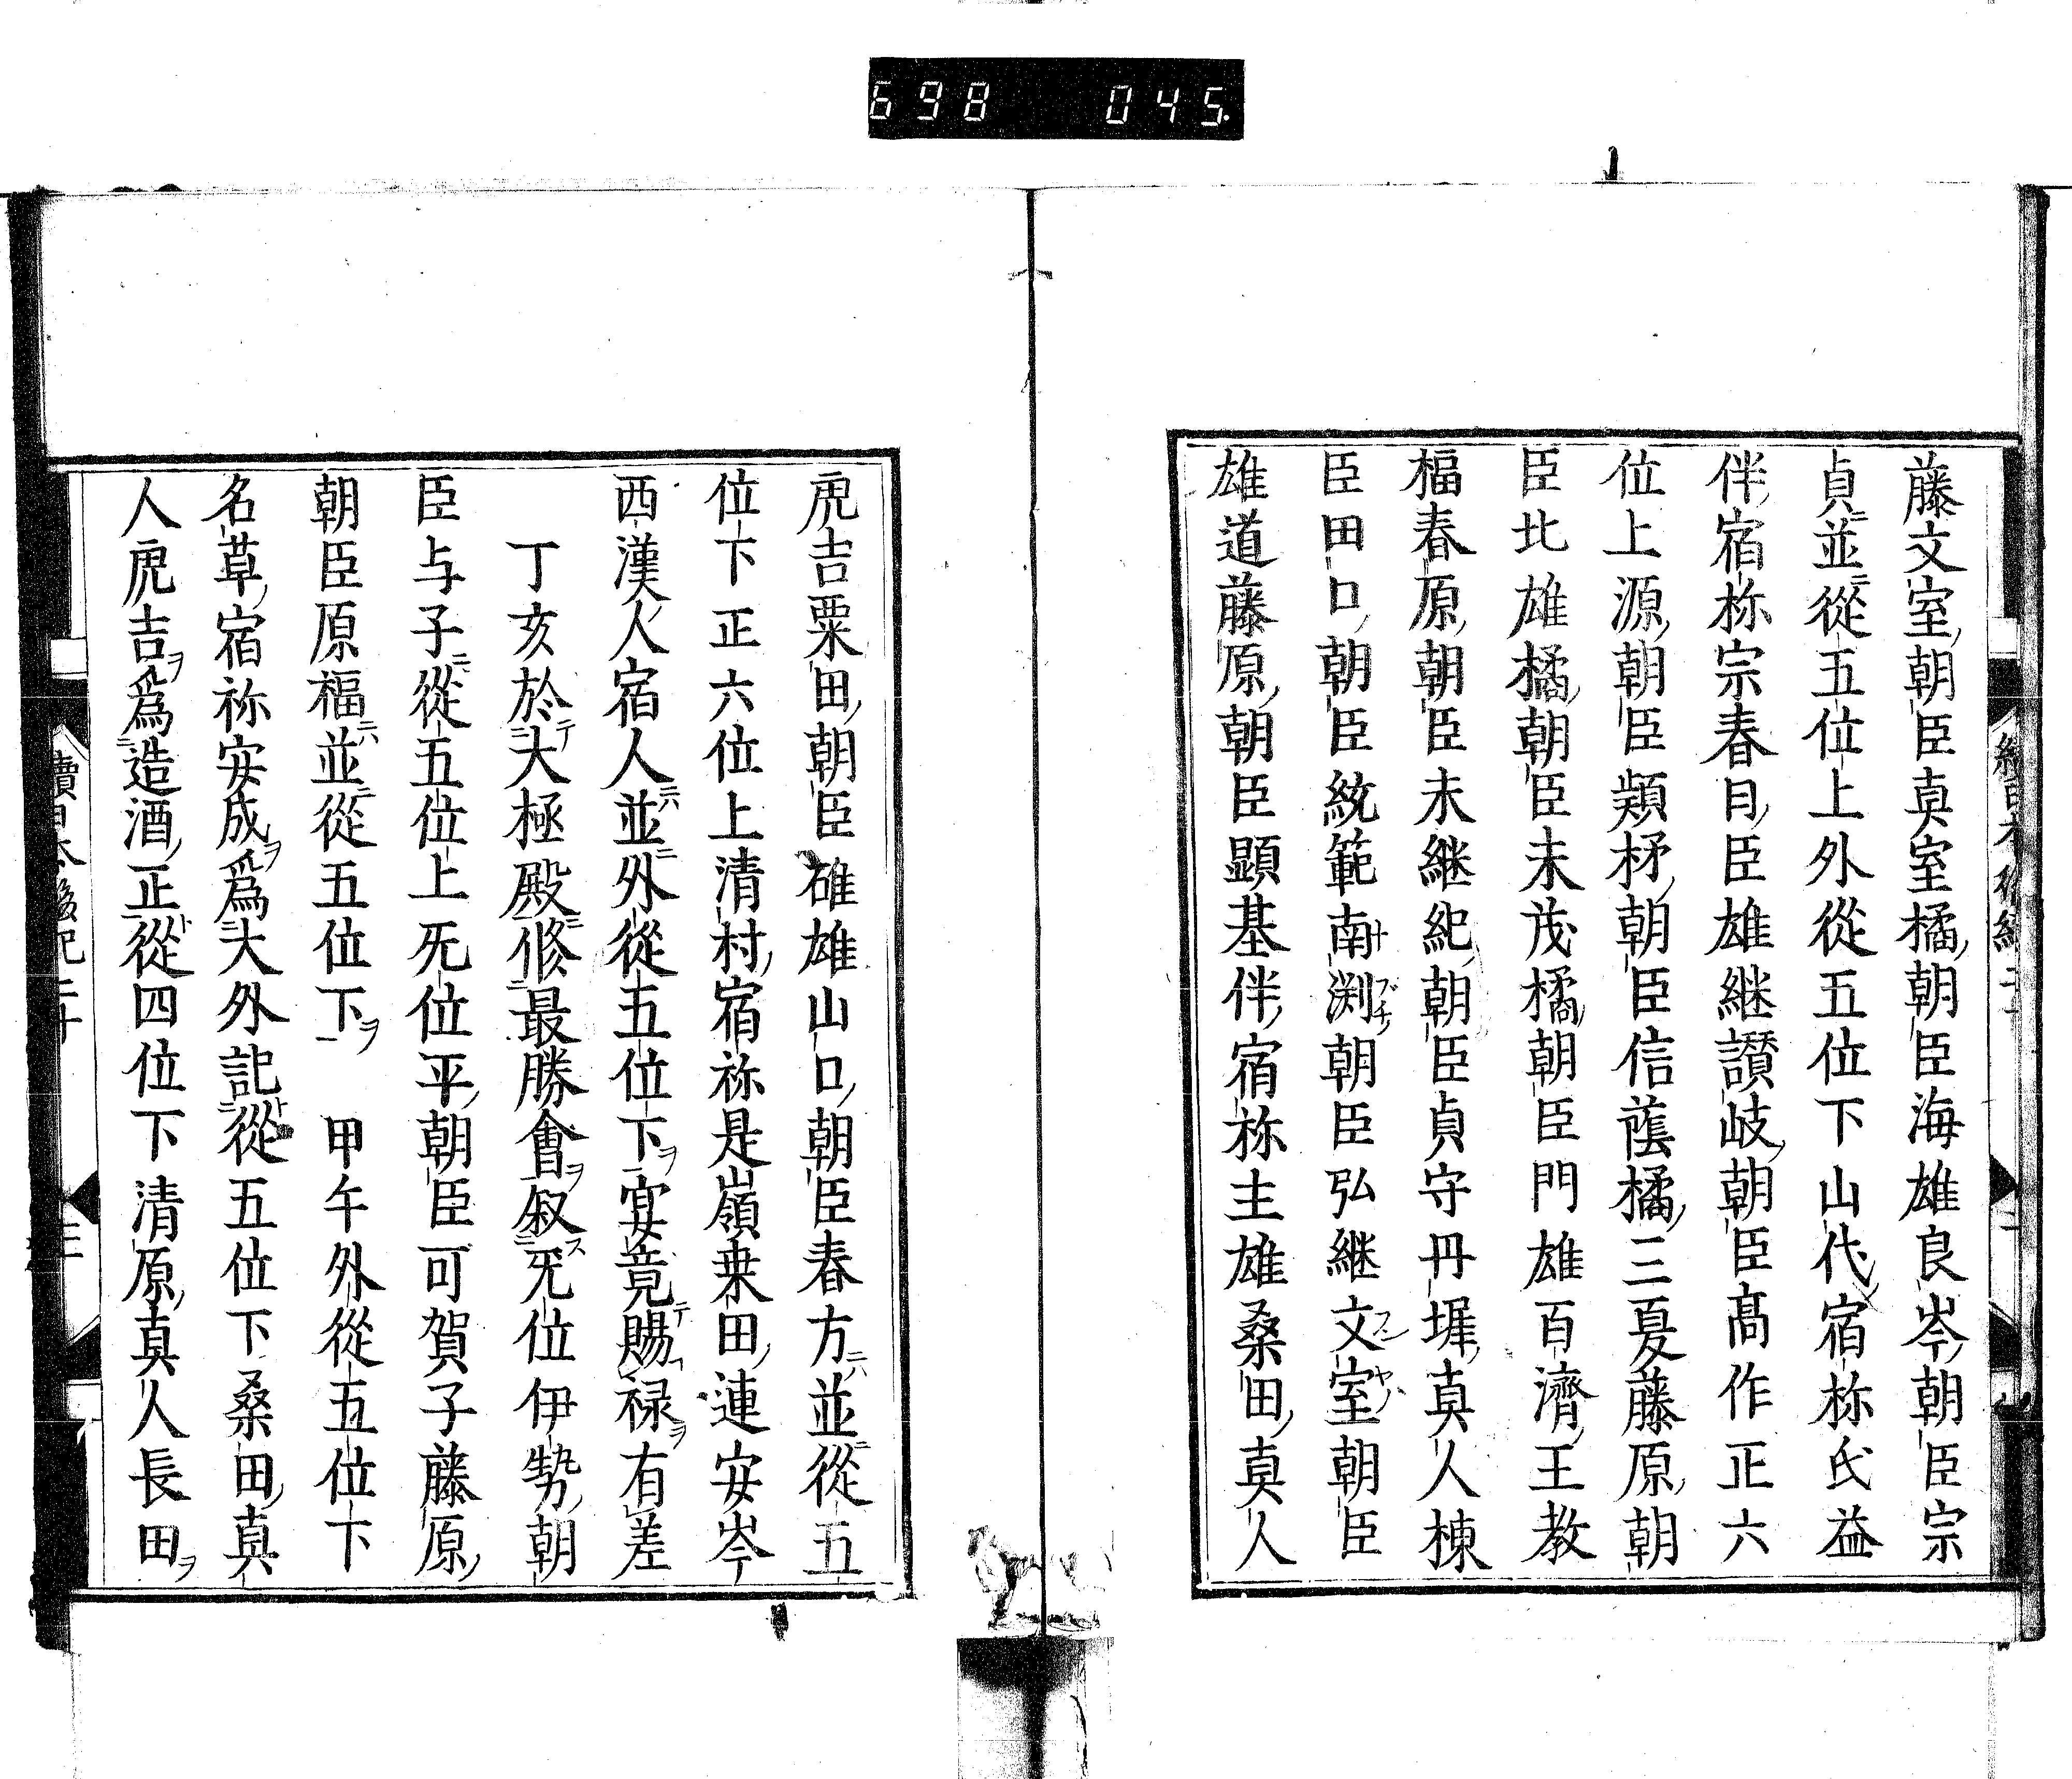 698 045.
藤文室朝臣真室橘朝臣海雄良岑朝臣宗
貞並從五位上外從五位下山代宿祢氏益
伴宿祢宗春日臣雄継讃岐朝臣高作正六
位上源朝臣頴枤朝臣信蔭橘三夏藤原朝
臣北雄橘朝臣末茂橘朝臣門雄百濟王教
福春原朝臣末継紀朝臣貞守丹墀真人棟
臣田口朝臣統範南渕朝臣弘継文室朝臣
雄道藤原朝臣顕基伴宿祢主雄桑田真人
虎吉粟田朝臣碓雄山口朝臣春方並從五
位下正六位上清村宿祢是嶺桒田連安岑
西漢人宿人並外從五位下宴竟賜禄有差
丁亥於大極殿修最勝會叙无位伊勢朝
臣与子從五位上无位平朝臣可賀子藤原
朝臣原福並從五位下 甲午外從五位下
名草宿祢安成爲大外記從五位下桑田真
人虎吉爲造酒正從四位下清原真人長田
續日本後紀二十